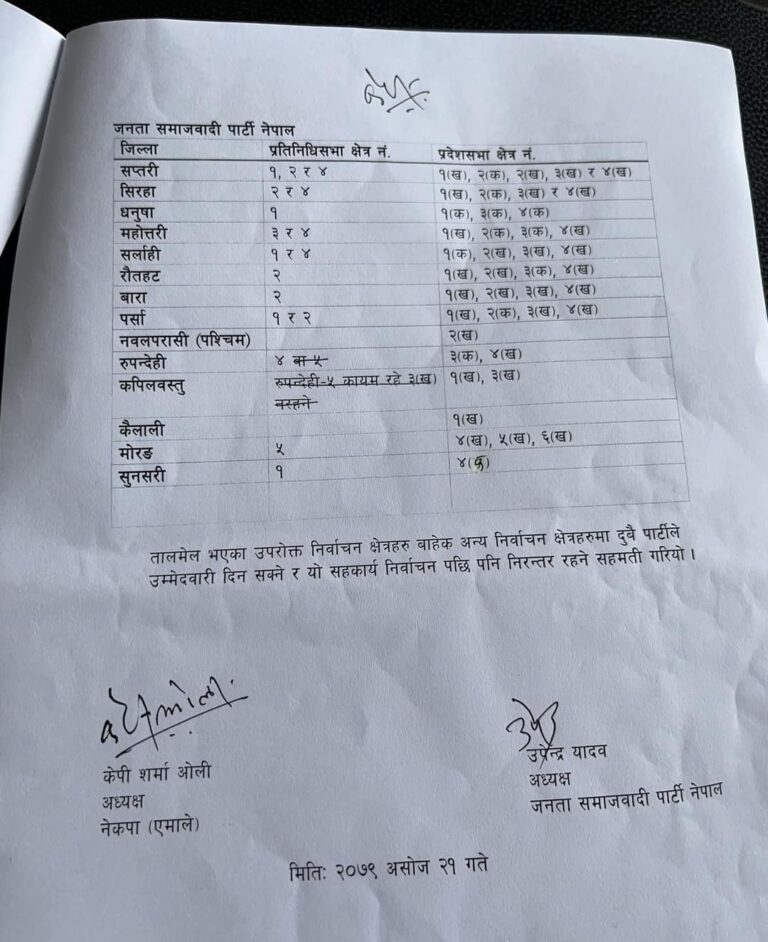 जनता समाजवादी पार्टी नेपाल
जिल्ला प्रतिनिधिसभा क्षेत्र नं. प्रदेशसभा क्षेत्र नं.
सप्तरी १, २ र ४ १(ख), २(क), २(ख), ३(ख) र ४(ख)
सिरहा २ र ४ १(ख), २(क), ३(ख) र ४(ख)
धनुषा १ १(क), ३(क), ४(क)
महोत्तरी ३ र ४ १(ख), २(क), ३(क), ४(ख)
सर्लाही १ र ४ १(क), २(ख), ३(ख), ४(ख)
रौतहट २ १(ख), २(ख), ३(क), ४(ख)
बारा २ १(ख), २(ख), ३(ख), ४(ख)
पर्सा १ र २ १(ख), २(क), ३(ख), ४(ख)
नवलपरासी (पश्चिम) २(ख)
रुपन्देही ४ वा ५ ३(क), ४(ख)
कपिलवस्तु रुपन्देही-५ कायम रहे ३(ख) १(ख), ३(ख)
नरहने
कैलाली १(ख)
मोरङ ५ ४(ख), ५(ख), ६(ख)
सुनसरी १ ४(क)
तालमेल भएका उपरोक्त निर्वाचन क्षेत्रहरु बाहेक अन्य निर्वाचन क्षेत्रहरुमा दुवै पार्टीले
उम्मेदवारी दिन सक्ने र यो सहकार्य निर्वाचन पछि पनि निरन्तर रहने सहमती गरियो ।
केपी शर्मा ओली
अध्यक्ष
नेकपा (एमाले)
उपेन्द्र यादव
अध्यक्ष
जनता समाजवादी पार्टी नेपाल
मितिः २०७९ असोज २१ गते